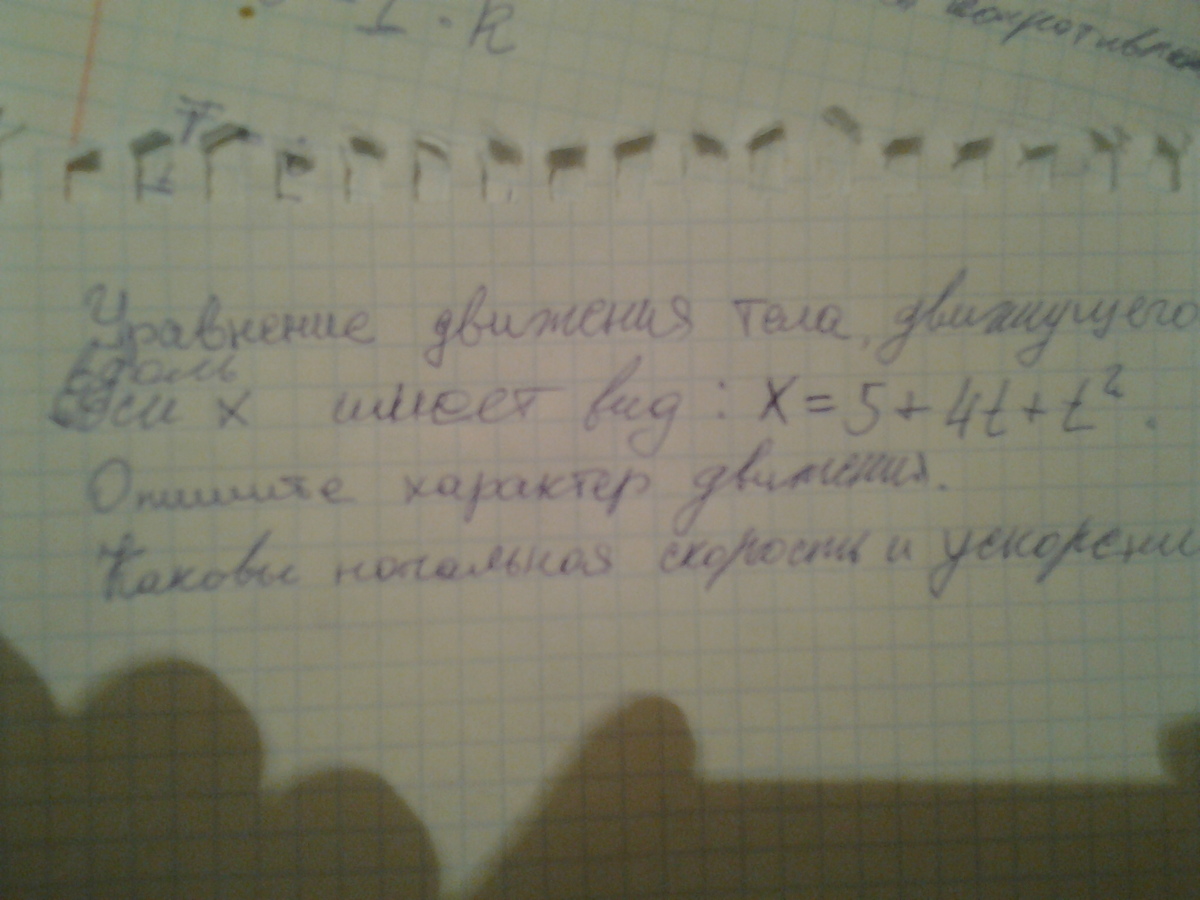 I · R
Уравнение движения тела, движущего
вдоль
оси х имеет вид : X = 5 + 4t + t².
Опишите характер движения.
Каковы начальная скорость и ускорени